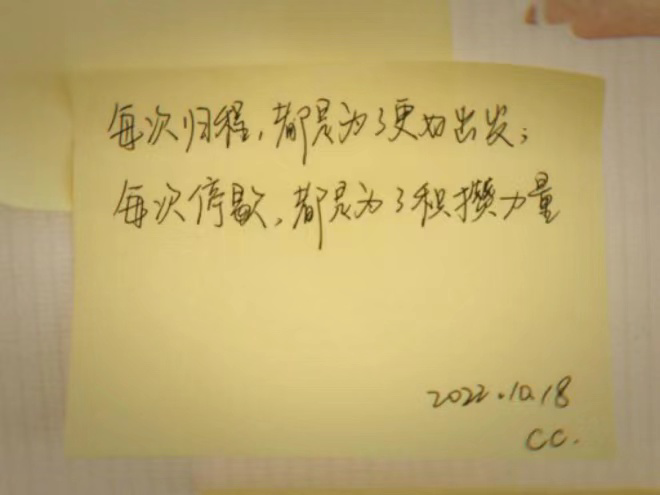 每次归程，都是为了更好出发；
每次停歇，都是为了积攒力量
2022.10.18
CC.